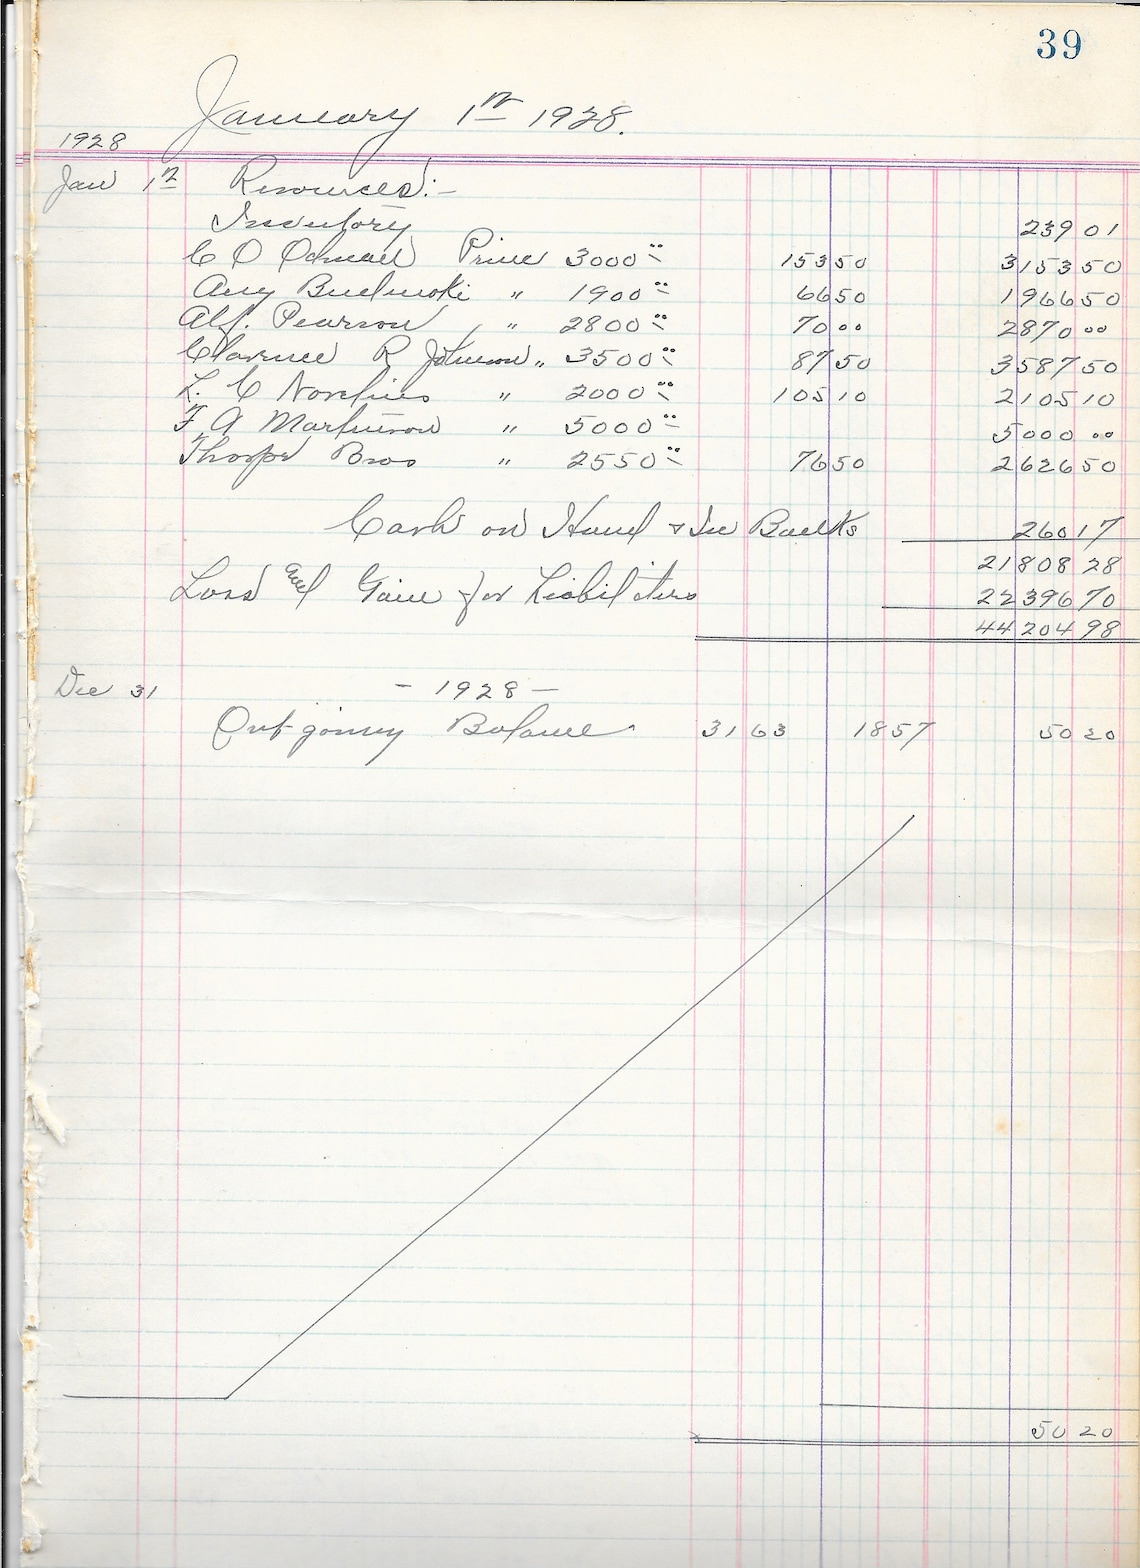 39
January 1st 1928.
1928
Jan 1st Resources:-
Inventory 239 01
C O Prin 3000 00 153 50 3153 50
Aug " 1900 00 66 50 1966 50
Alf. Pearson " 2800 00 70 00 2870 00
Clarence R Johnson " 3500 00 87 50 3587 50
L. C " 2000 00 105 10 2105 10
F. A " 5000 00 5000 00
Thorpe Bros " 2550 00 76 50 2626 50
Cash on Hand & In Banks 260 17
21808 28
Loss and Gain for Liabilities 22396 70
44204 98
Dec 31 - 1928 -
Outgoing Balance 31 63 18 57 50 20
50 20